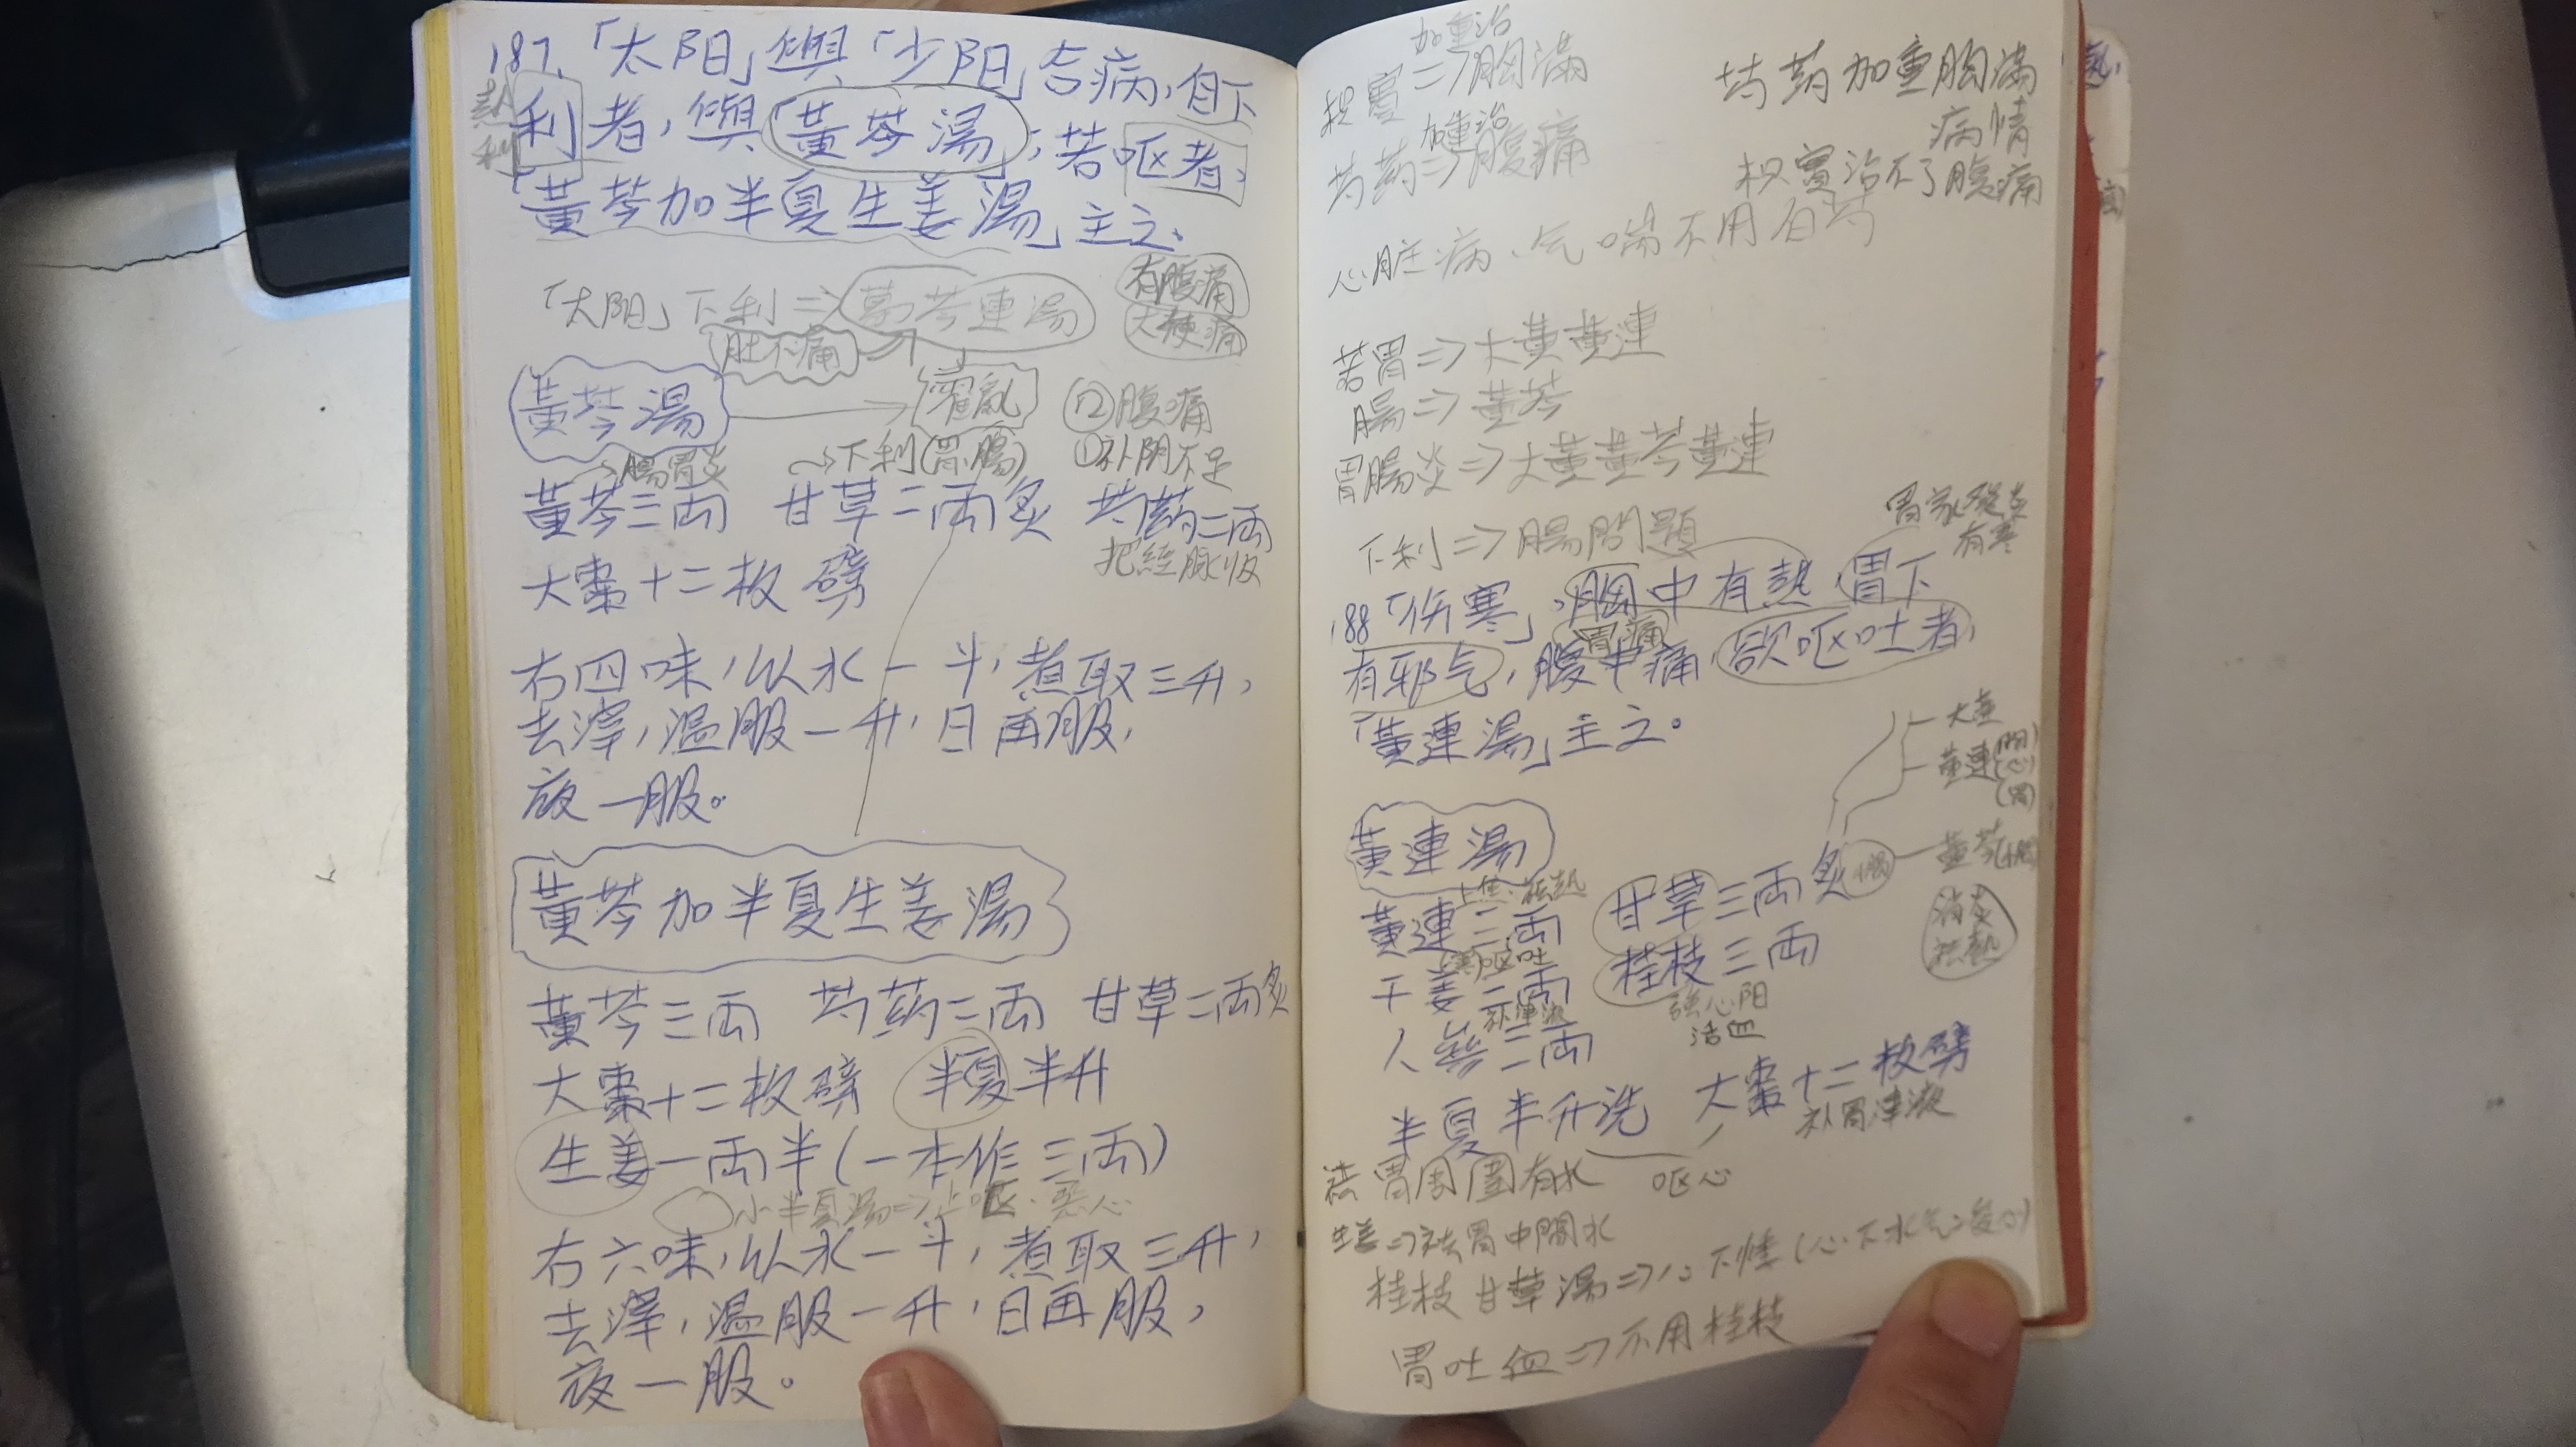 187.「太阳」與「少阳」合病，自下
利者，與「黃芩湯」；若呕者，
「黃芩加半夏生姜湯」主之。
熱利
「太阳」下利⇒葛芩連湯
肚不痛
有腹痛
大便痛
黃芩湯
→腸胃炎
霍亂
→下利(胃、腸)
②腹痛
①补阴不足
黃芩三両 甘草二両炙 芍葯二両
把經脉收
大棗十二枚劈
右四味，以水一斗，煮取三升，
去滓，温服一升，日再服，
夜一服。
黃芩加半夏生姜湯
黃芩三両 芍葯二両 甘草二両炙
大棗十二枚劈 半夏半升
生姜一両半(一本作三両)
小半夏湯⇒止呕、恶心
右六味，以水一斗，煮取三升，
去滓，温服一升，日再服，
夜一服。
加重治
枳實⇒胸滿
加重治
芍葯⇒腹痛
芍葯加重胸滿
病情
枳實治不了腹痛
心脏病、气喘不用白芍
若胃⇒大黃黃連
腸⇒黃芩
胃腸炎⇒大黃黃芩黃連
下利⇒腸問題
胃家發炎
有寒
188「伤寒」，胸中有熱，胃下
胃痛
有邪气，腹中痛，欲呕吐者，
「黃連湯」主之。
大黃
黃連
(心)
(胃)
黃芩
消炎
祛熱
黃連湯
上焦、祛熱
黃連三両 甘草三両炙
呕吐
干姜三両 桂枝三両
补津液
強心阳
活血
人參二両
半夏半升洗 大棗十二枚劈
补胃津液
祛胃周圍有水
呕心
生姜⇒祛胃中間水
桂枝甘草湯⇒心下悸
胃吐血⇒不用桂枝